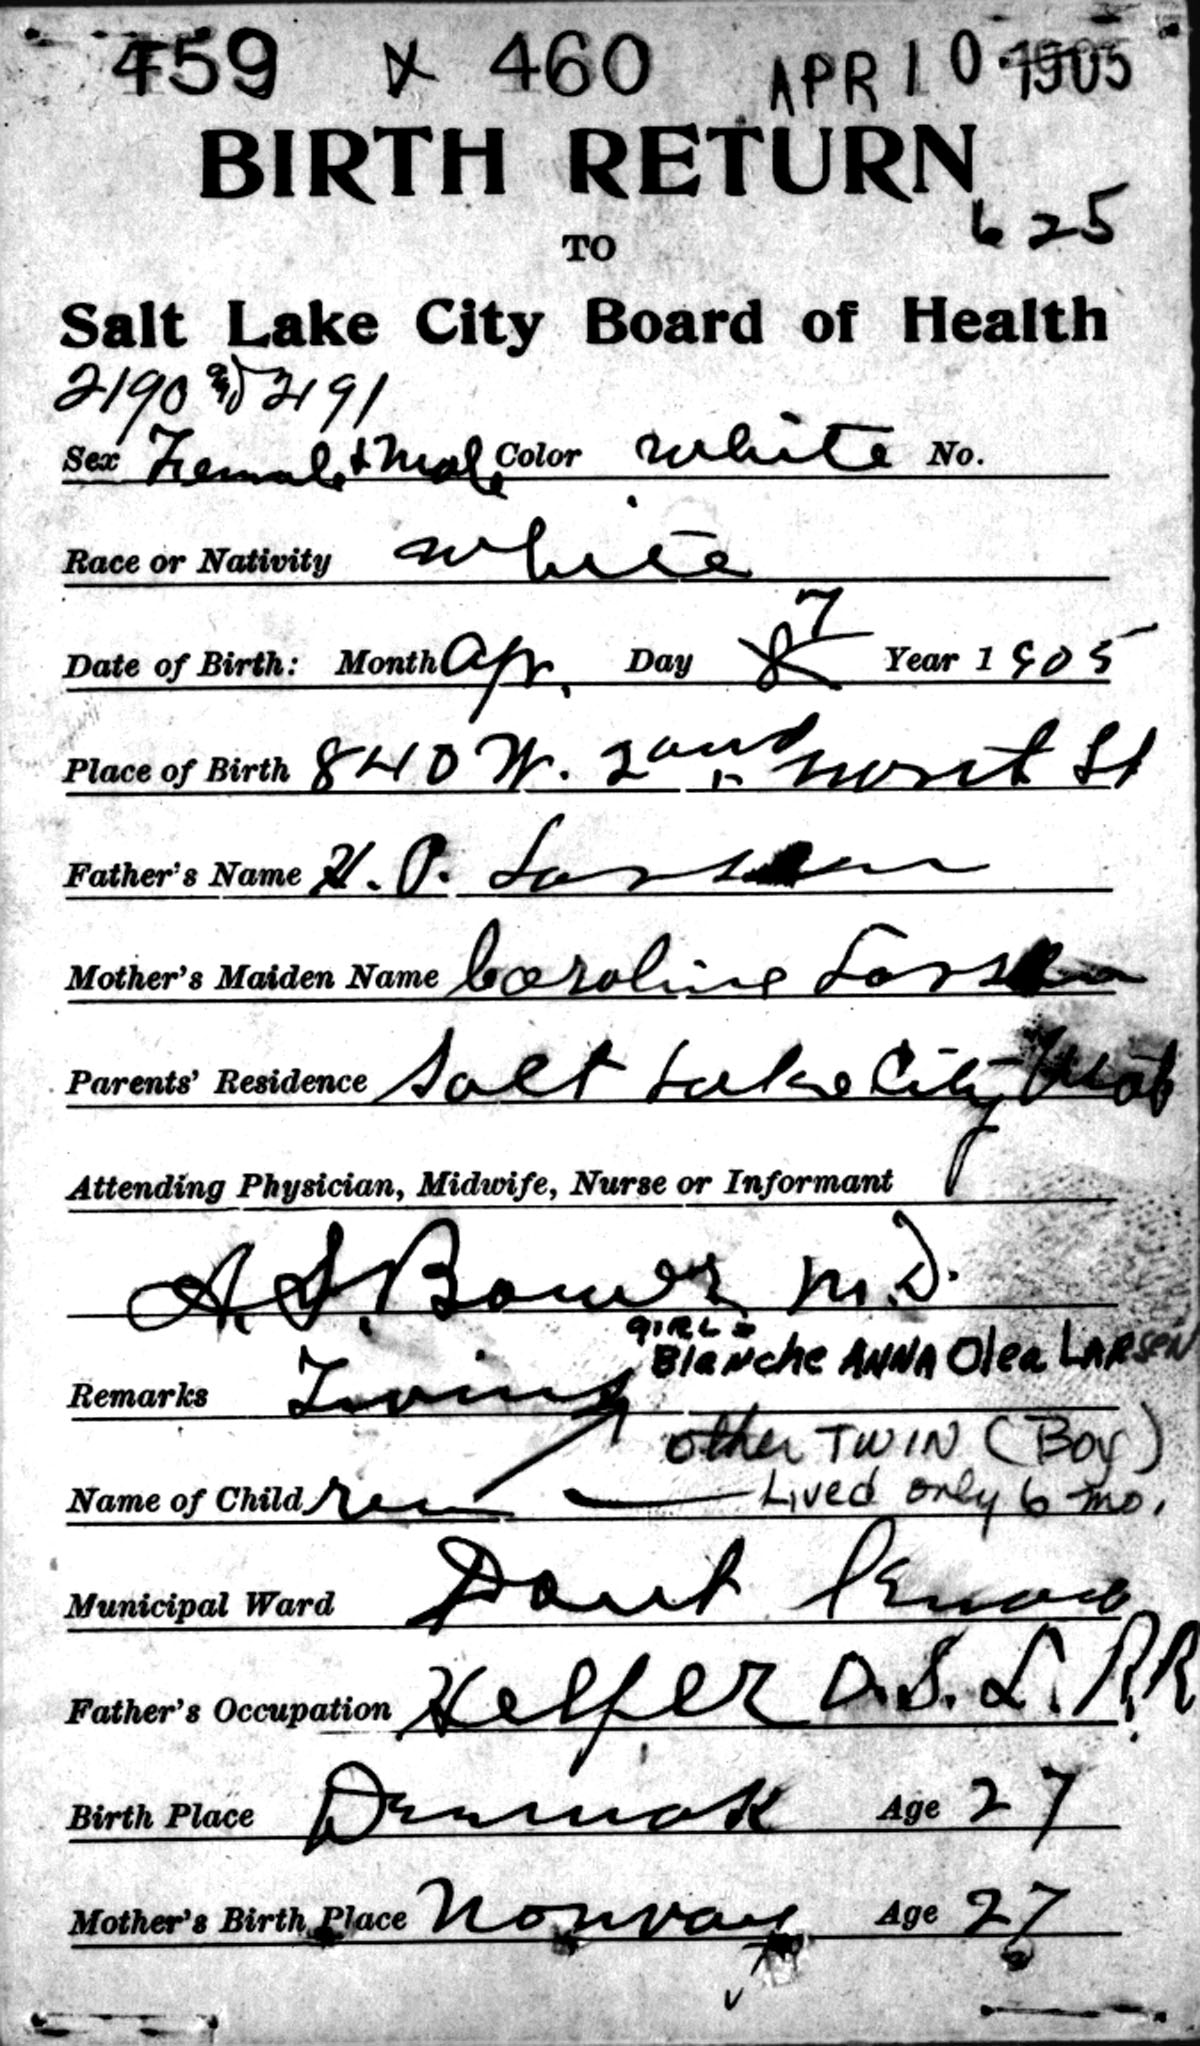 459 & 460 APR 10 1905
BIRTH RETURN
625
TO
Salt Lake City Board of Health
2190 and 2191
Sex Female & Male Color white No.
Race or Nativity white
Date of Birth: Month Apr. Day 8 7 Year 1905
Place of Birth 840 W. 2ond North St
Father's Name H. P. Larsen
Mother's Maiden Name Caroline Larsen
Parents' Residence Salt Lake City Utah
Attending Physician, Midwife, Nurse or Informant
A. S. Bower M.D.
GIRL =
Blanche ANNA Olea LARSEN
Remarks Twins
other TWIN (Boy)
Name of Child Lived only 6 mo.
Municipal Ward Dont Know
Father's Occupation Helper O.S.L. RR
Birth Place Denmark Age 27
Mother's Birth Place Norway Age 27